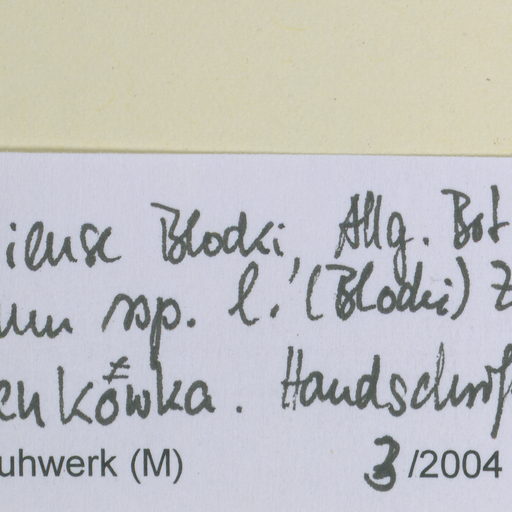 iense Blocki, Allg. Bot
num ssp. l.! (Blocki) Z
enkówka. Handschrif
uhwerk (M) 3/2004